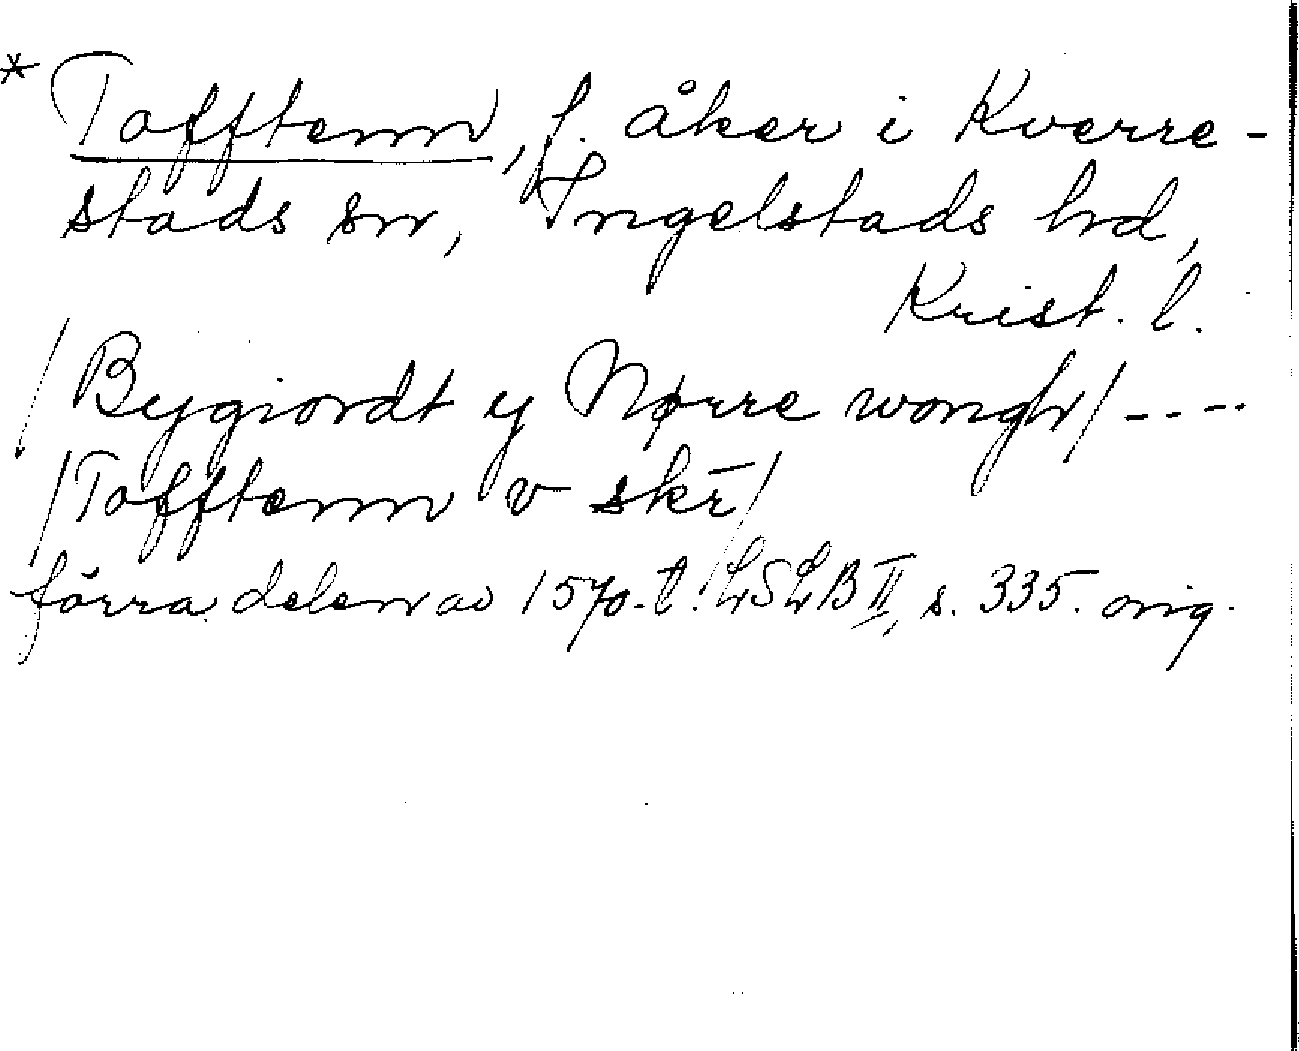 * Tofftenn, f. åker i Kverre-
stads sn, Ingelstads hd,
Krist. l.
/Bygiordt y Nørre wongh/ ----
/Tofftenn v skr̄/
förra delen av 1570-t. LSLB II, s. 335. orig.